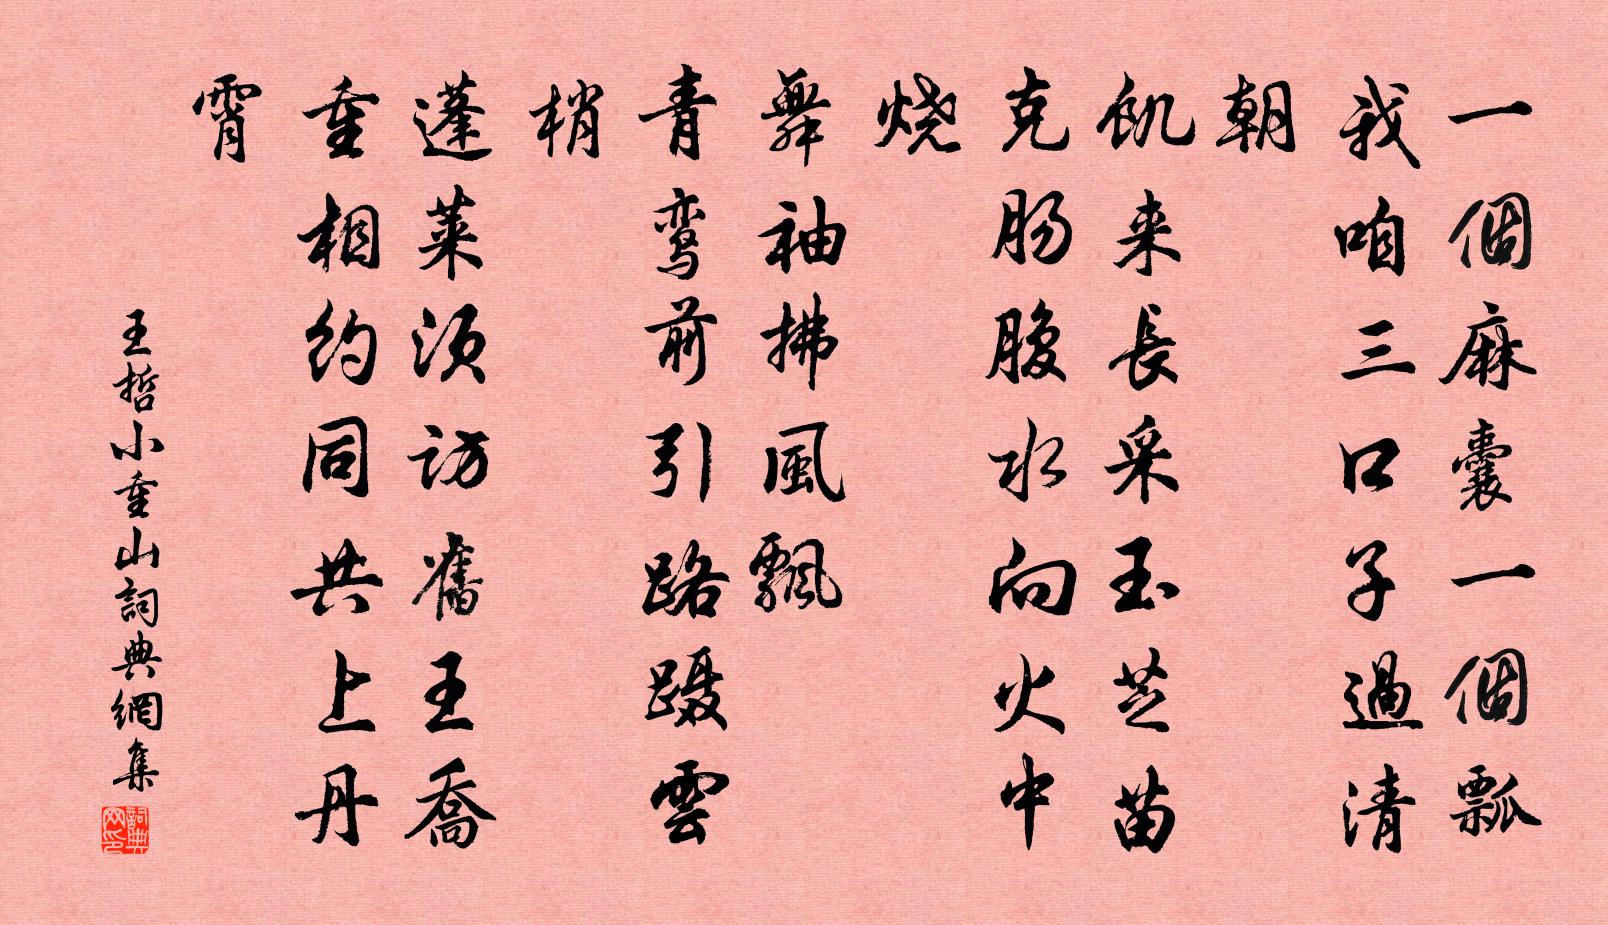 一個麻囊一個瓢
我咱三口子過清
朝
飢来長采玉芝苗
克肠腹水向火中
烧
舞袖拂風飄
青鸾前引路蹑雲
梢
蓬莱须访舊王喬
重相约同共上丹
霄
王哲小重山詞典網集
詞典网印